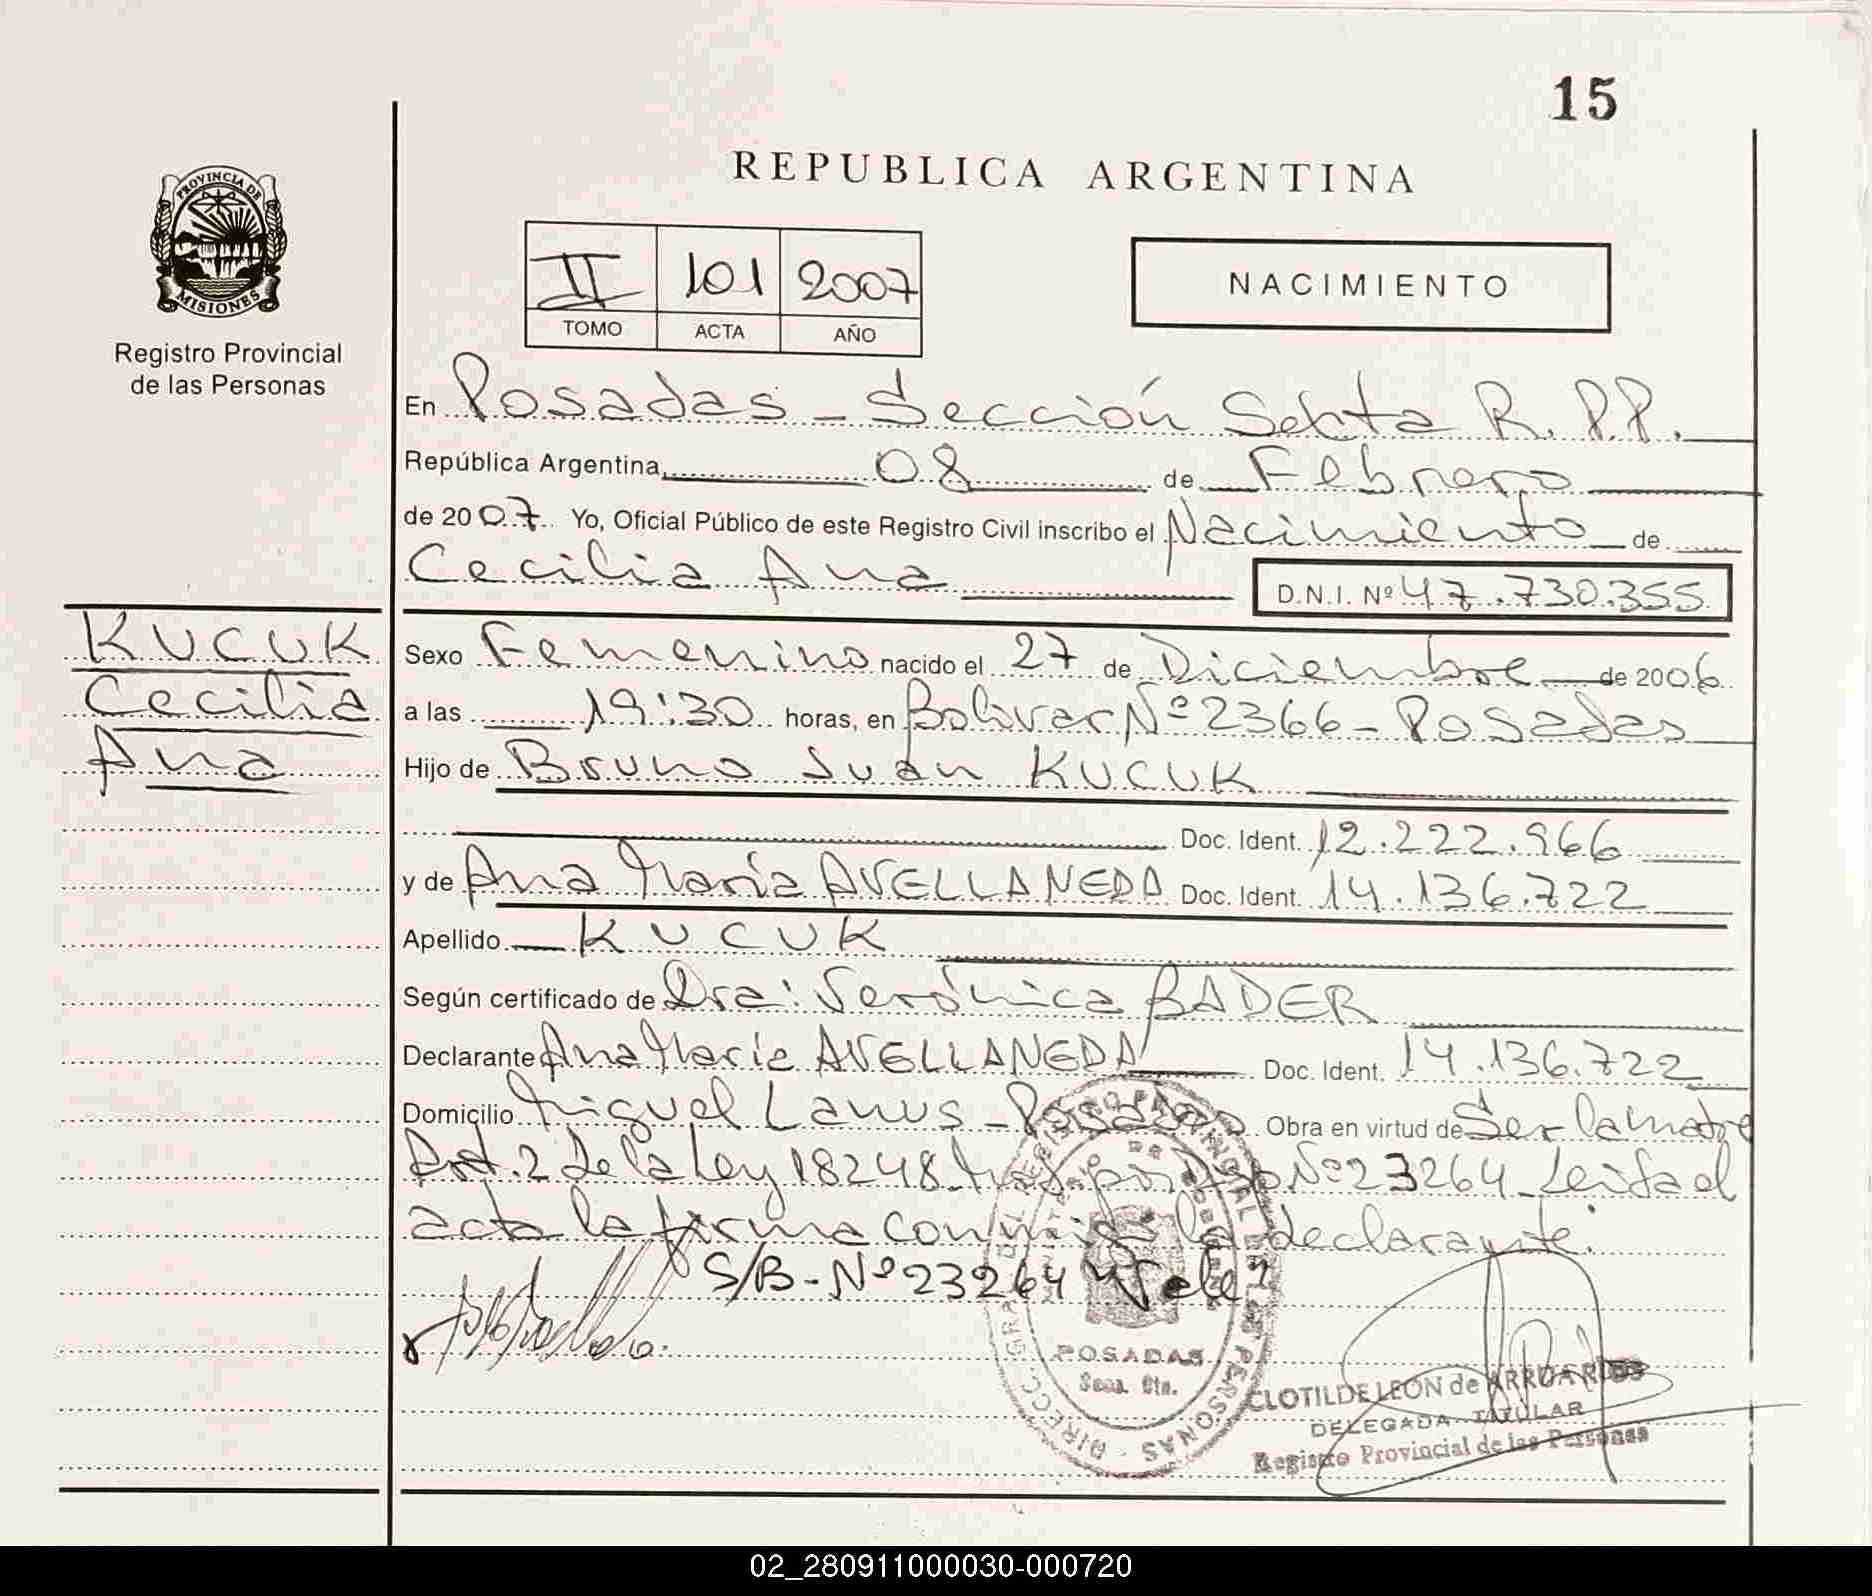 15
REPUBLICA ARGENTINA
PROVINCIA DE
MISIONES
Registro Provincial
de las Personas
II 101 2007
TOMO ACTA AÑO
NACIMIENTO
En Posadas - Sección Sexta R.P.P.
República Argentina, 08 de Febrero
de 2007. Yo, Oficial Público de este Registro Civil inscribo el Nacimiento de
Cecilia Ana D.N.I. Nº 47.730.355
KUCUK
Cecilia
Ana
Sexo Femenino nacido el 27 de Diciembre de 2006
a las 19:30 horas, en Bolivar Nº 2366 - Posadas
Hijo de Bruno Juan KUCUK
Doc. Ident. 12.222.966
y de Ana María AVELLANEDA Doc. Ident. 14.136.722
Apellido KUCUK
Según certificado de Dra: Verónica BADER
Declarante Ana Maria AVELLANEDA Doc. Ident. 14.136.722
Domicilio Miguel Lanus - Posadas Obra en virtud de Ser la madre
Art. 2 de la Ley 18248 Nº 23264 - Leida el
acta la firma conmigo la declarante.
S/B - Nº 23264 Vale
POSADAS
CLOTILDE LEON de ARRUA RIOS
DELEGADA TITULAR
Registro Provincial de las Personas
02_280911000030-000720